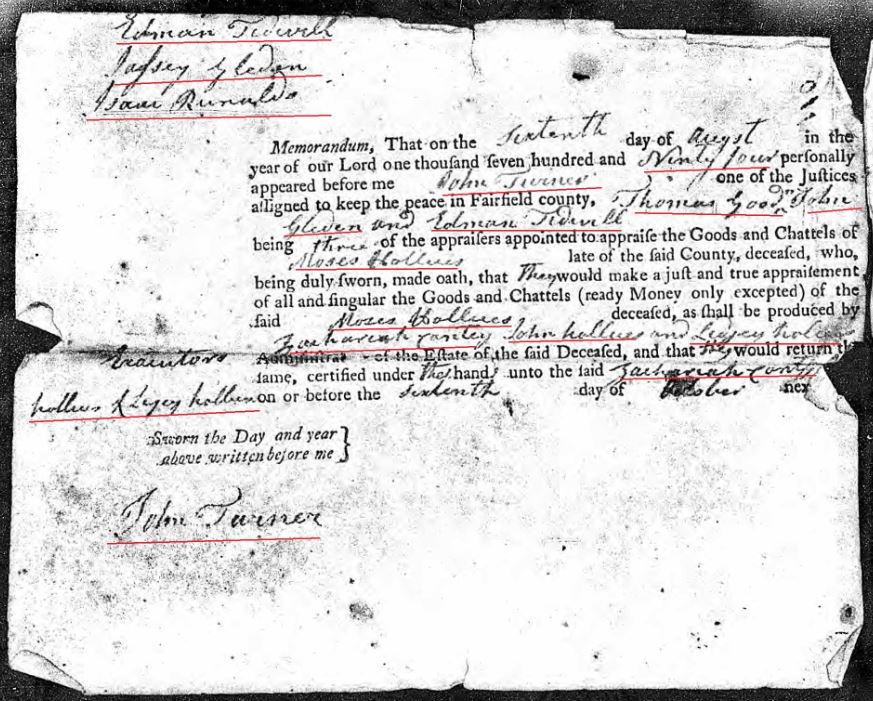 Edman Tidwell
Jassey Gladen
Isaac Runalds
Memorandum, That on the sixtenth day of augst in the
year of our Lord one thouſand ſeven hundred and Ninty four perſonally
appeared before me John Turner one of the Juſtices
aſſigned to keep the peace in Fairfield county, Thomas Goodn John
Gladen and Edman Tidwell
being three of the appraiſers appointed to appraiſe the Goods and Chattels of
Moses Hollies late of the ſaid County, deceaſed, who,
being duly ſworn, made oath, that They would make a juſt and true appraiſement
of all and ſingular the Goods and Chattels (ready Money only excepted) of the
ſaid Moses Hollies deceaſed, as ſhall be produced by
Zachariah Cantey John hollies and Ligey hollies
Executors Adminiſtrat of the Eſtate of the ſaid Deceaſed, and that They would return th
ſame, certified under Thehands unto the ſaid Zachariah Cantey
hollies & Ligey hollies on or before the sixtenth day of October nex
Sworn the Day and year
above written before me }
John Turner